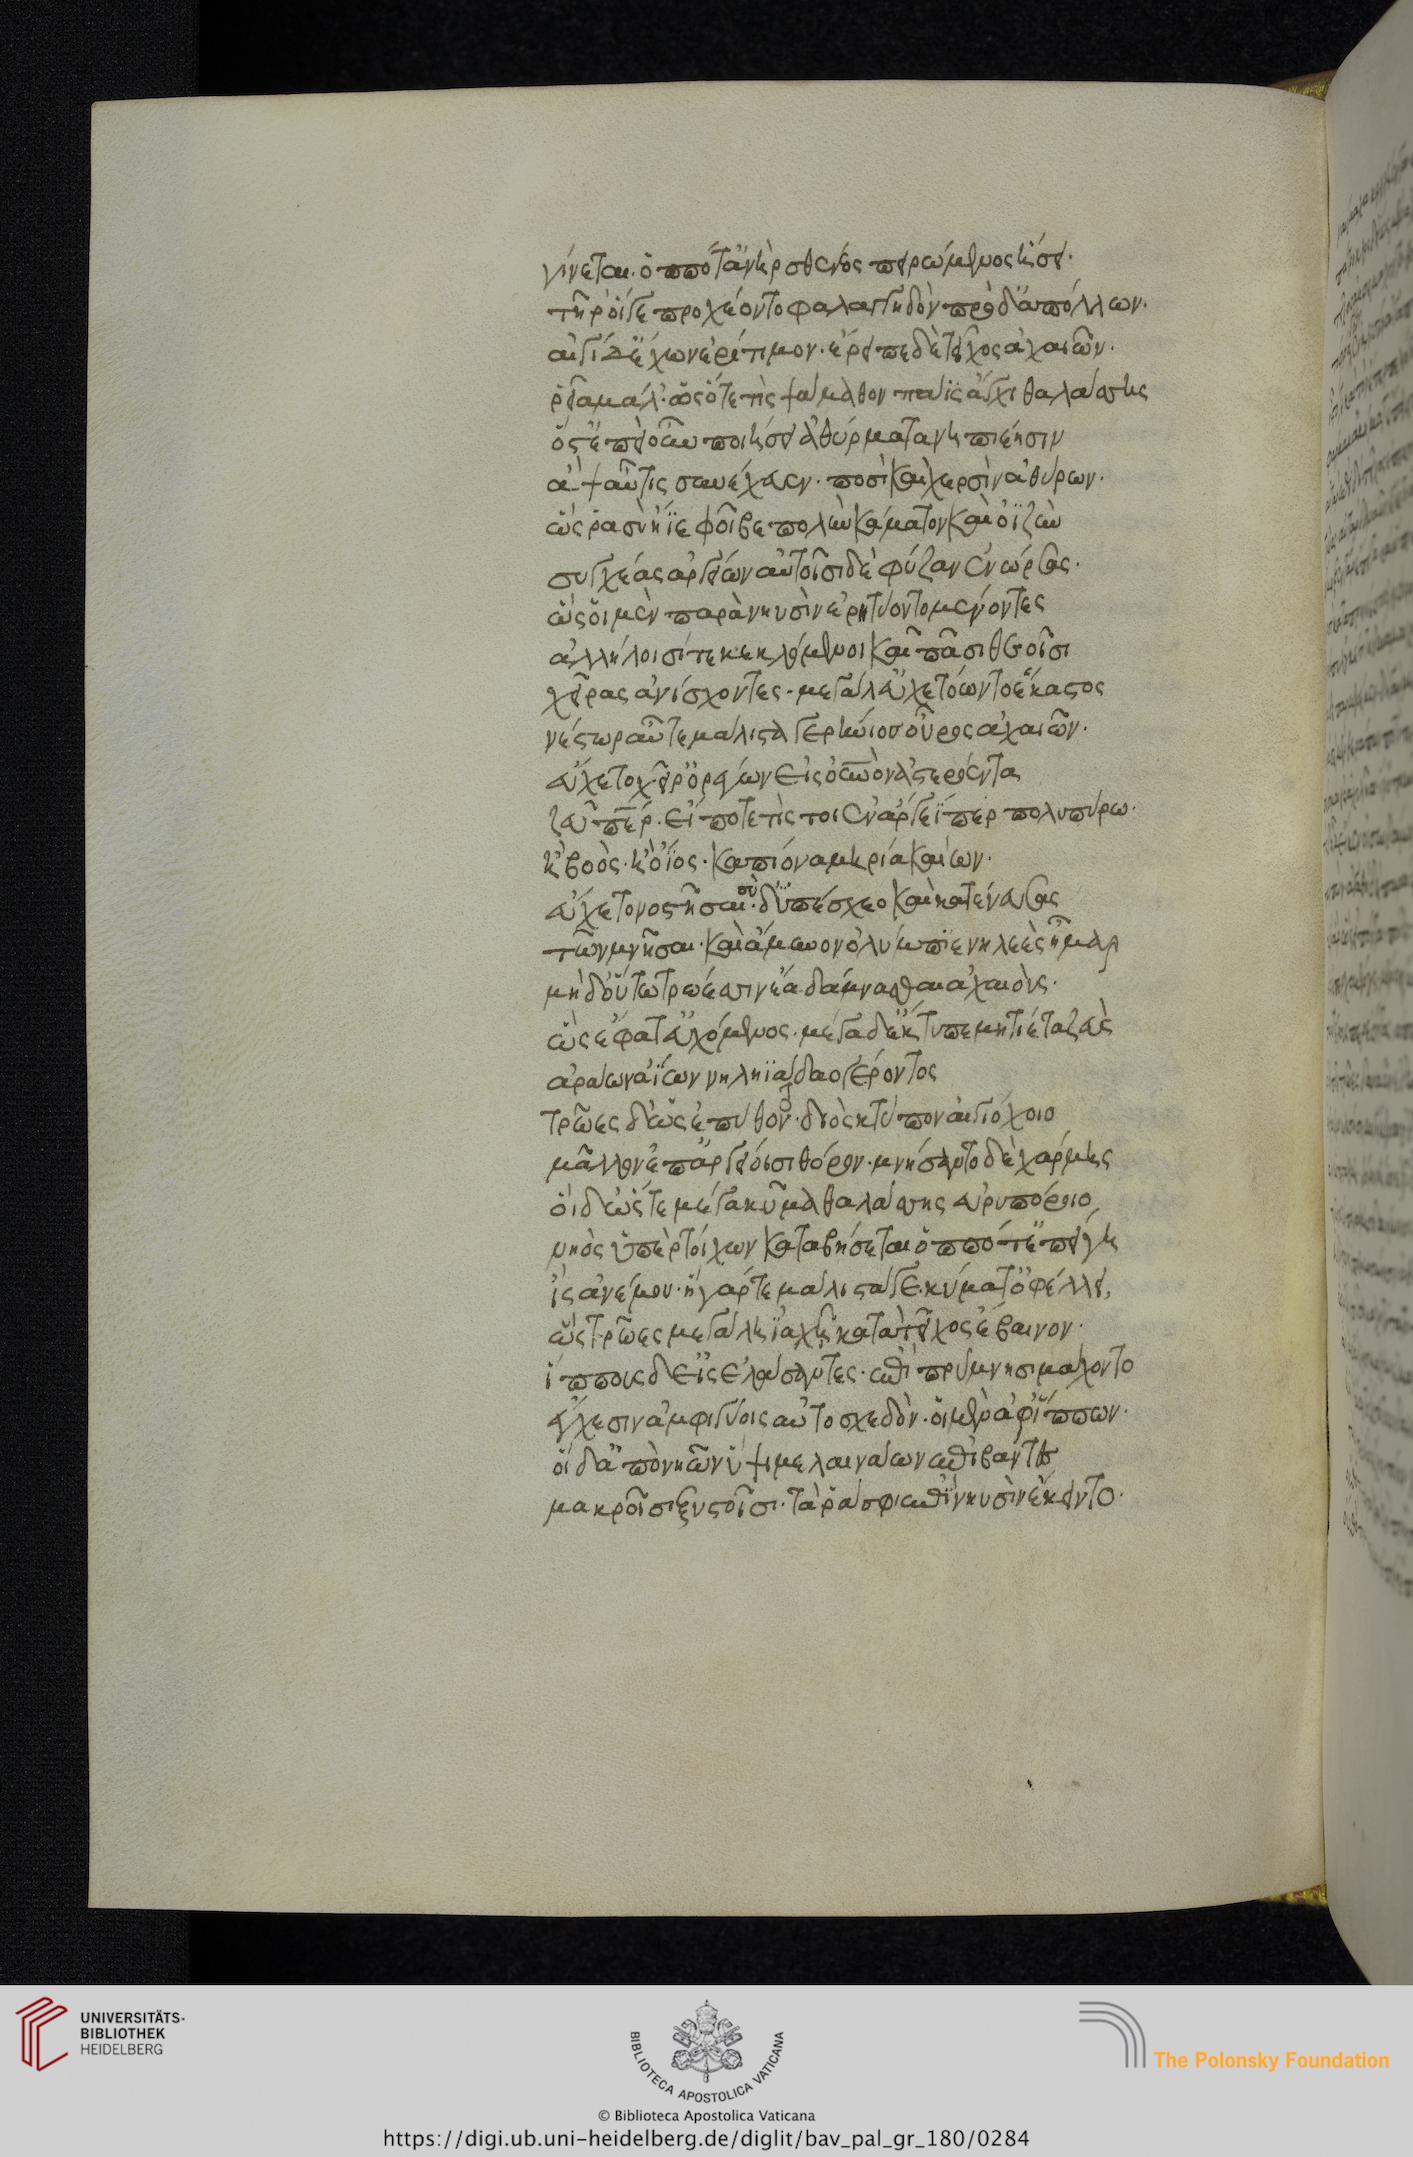 γίνεται· ὁππότ' ἀνὴρ σθένεος πειρώμενος ἥσει·
τῇ ῥ' οἵγε προχέοντο φαλαγγηδὸν πρὸ δ' ἀπόλλων·
αἰγίδ' ἔχων ἐρίτιμον· ἔρειπε δὲ τεῖχος ἀχαιῶν·
ῥεῖα μάλ'· ὡς ὅτε τὶς ψάμαθον παῖς ἄγχι θαλάσσης
ὅς τ' ἐπεὶ οὖν ποιήσει ἀθύρματα νηπιέησιν
ἂψ αὖτις συνέχευεν· ποσὶ καὶ χερσὶν ἀθύρων·
ὥς ῥα σὺ ἤϊε φοῖβε πολὺν κάματον καὶ ὀϊζὺν
σύγχεας ἀργείων αὐτοῖσι δὲ φύζαν ἐνώρσας·
ὣς οἱ μὲν παρὰ νηυσὶν ἐρητύοντο μένοντες
ἀλλήλοισί τε κεκλόμενοι καὶ πᾶσι θεοῖσι
χεῖρας ἀνίσχοντες· μεγάλ' εὐχετόωντο ἕκαστος
νέστωρ αὖτε μάλιστα γερήνιος οὖρος ἀχαιῶν·
εὔχετο χεῖρ' ὀρέγων εἰς οὐρανὸν ἀστερόεντα
ζεῦ πάτερ· εἴ ποτε τίς τοι ἐν ἄργεΐ περ πολυπύρω·
ἢ βοὸς· ἢ ὄϊος· κατὰ πίονα μηρία καίων·
εὔχετο νοστῆσαι· σὺ δ' ὑπέσχεο καὶ κατένευσας
τῶν μνῆσαι· καὶ ἄμυνον ὀλύμπιε νηλεὲς ἦμαρ
μὴ δ' οὕτω τρώεσσιν ἔα δάμνασθαι ἀχαιούς·
ὣς ἔφατ' εὐχόμενος· μέγα δ' ἔκτυπε μητίετα ζεὺς
ἀράων ἀΐων νηληϊάδαο γέροντος
τρῶες δ' ὡς ἐπύθοντο· διὸς κτύπον αἰγιόχοιο
μᾶλλον ἐπ' ἀργείοισι θόρον· μνήσαντο δὲ χάρμης
οἱ δ' ὥς τε μέγα κῦμα θαλάσσης εὐρυπόροιο
νηὸς ὑπὲρ τοίχων καταβήσεται ὁππότ' ἐπείγη
ἲς ἀνέμου· ἡ γάρ τε μάλιστά γε κύματ' ὀφέλλει,
ὣς τρῶες μεγάλη ἰαχῇ κατὰ τεῖχος ἔβαινον·
ἵππους δ' εἰσελάσαντες· ἐπὶ πρύμνησι μάχοντο
ἔγχεσιν ἀμφιγύοις αὐτοσχεδὸν· οἱ μὲν ἀφ' ἵππων·
οἱ δ' ἀπὸ νηῶν ὕψι μελαινάων ἐπιβάντες
μακροῖσι ξυστοῖσι· τά ῥά σφι ἐπὶ νηυσὶν ἔκειντο·
UNIVERSITÄTS-
BIBLIOTHEK
HEIDELBERG
BIBLIOTECA APOSTOLICA VATICANA
The Polonsky Foundation
© Biblioteca Apostolica Vaticana
https://digi.ub.uni-heidelberg.de/diglit/bav_pal_gr_180/0284